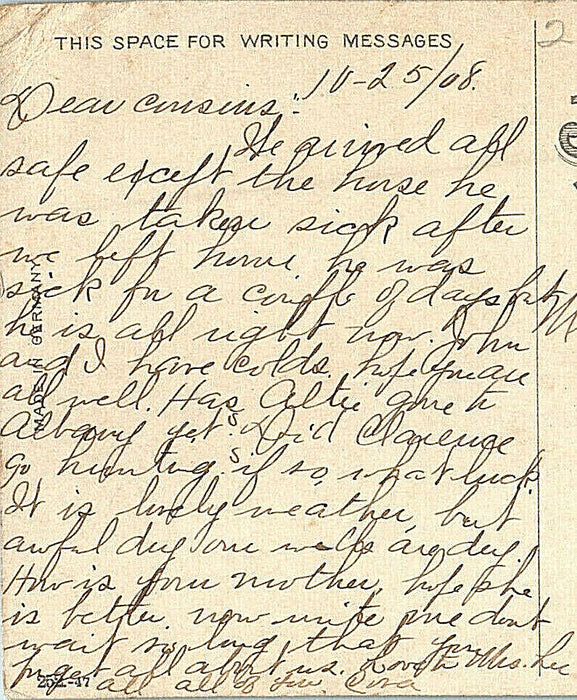 THIS SPACE FOR WRITING MESSAGES
10-25/08.
Dear cousins:
We arrived all
safe except the horse he
was taken sick after
we left home, he was
sick for a couple of days but
he is all right now. John
and I have colds, hope you are
all well. Has Altie gone to
Albany yet? Did Clarence
go hunting? if so, what luck
It is lovely weather, but
awful dry our wells are dry.
How is your mother, hope she
is better, now write me dont
wait so long that you
forget all about us. Love to Mrs. Lee
all
MADE IN GERMANY
2